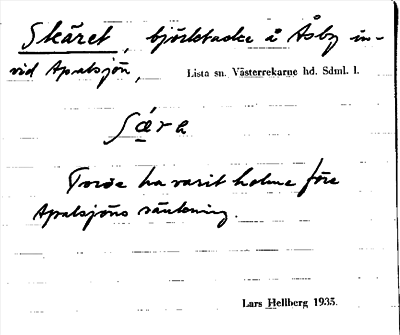 Skäret, björkbacke å Åsby in-
vid Apalsjön,
Lista sn. Västerrekarne hd. Sdml. l.
Torde ha varit holme före
Apalsjöns sänkning.
Lars Hellberg 1935.